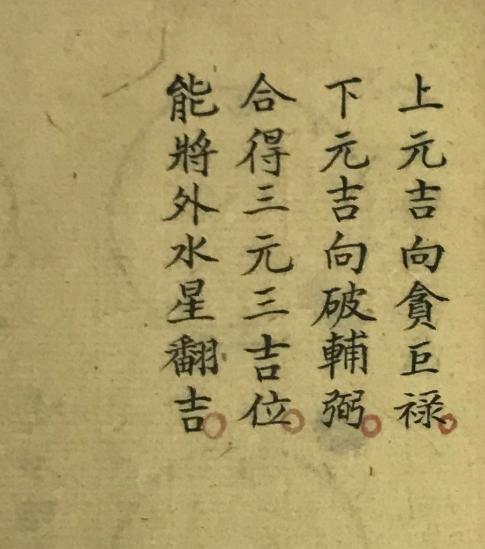 上元吉向貪巨祿
下元吉向破輔弼
合得三元三吉位
能將外水星翻吉